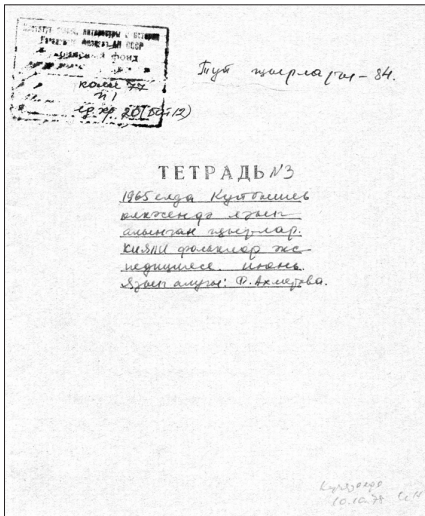 Институт языка, литературы и истории
Казанский филиал АН СССР
фонд
колл 77
п 1
ед. хр. 20
Туй җырлары – 84.
ТЕТРАДЬ №3
1965 елда Куйбышев
өлкәсендә язып
алынган җырлар.
КИЯЛИ фольклор экс-
педициясе. июнь.
Язып алучы: Ф. Ахметова.
10.10.77